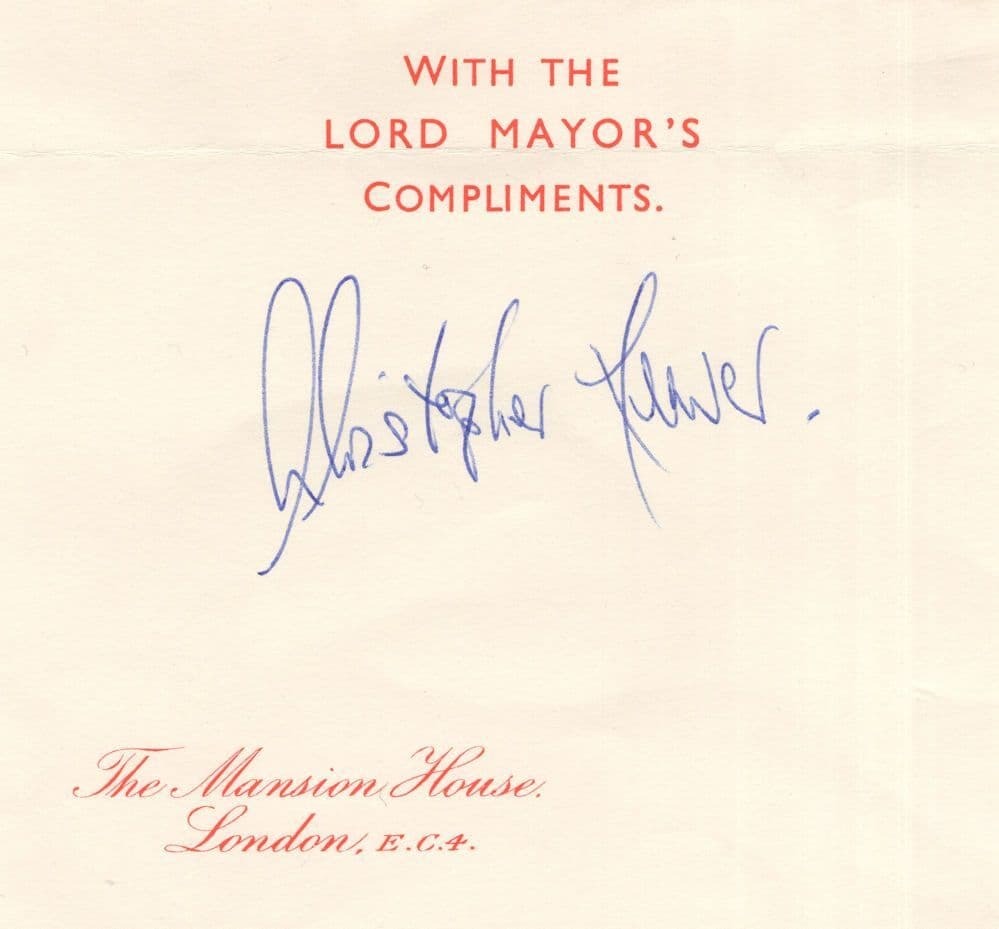 WITH THE
LORD MAYOR'S
COMPLIMENTS.
Christopher Leaver.
The Mansion House.
London, E.C.4.